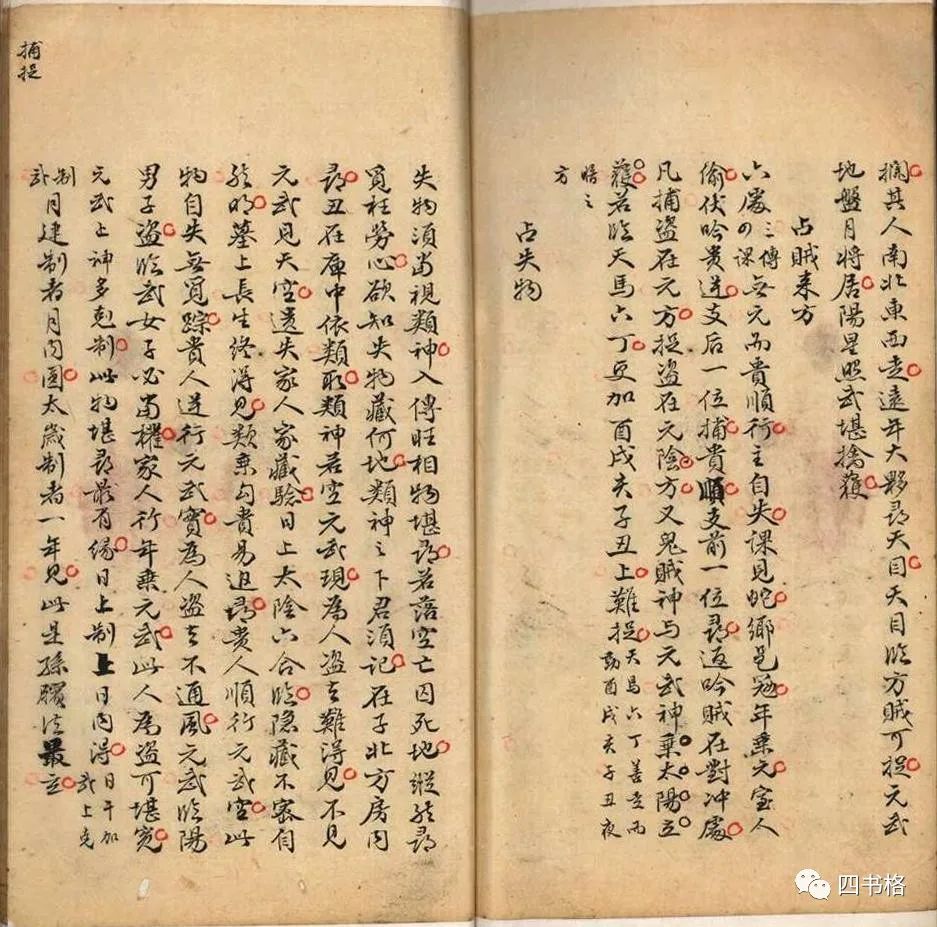 擒其人南北東西走遠年大夥尋天目天目臨方賊可捉元武
地盤月將居陽星照武堪擒獲
占賊来方
六處三傳四課無元而貴順行主自失課見蛇鄉邑冤年乗元室人
偷伏吟貴逆支后一位捕貴順支前一位尋返吟賊在對冲處
凡捕盗在元方捉盗在元陰方又鬼賊神与元武神乗太陽立
獲若臨天馬六丁更加酉戌亥子丑上難捉天馬六丁善走而
動酉戌亥子丑夜
暗之
方
占失物
失物須當視類神入傳旺相物堪尋若落空亡囚死地縱然尋
覓枉勞心欲知失物藏何地類神之下君須記在子北方房内
尋丑在庫中依類取類神若空元武現為人盗去難得見不見
元武見天空遺失家人家藏驗日上太陰六合臨隐藏不密自
然明墓上長生終得見類乗勾貴易追尋貴人順行元武空此
物自失無覓踪貴人逆行元武實為人盗去不通風元武臨陽
男子盗臨武女子必當權家人行年乗元武此人為盗可堪究
元武上神多剋制此物堪尋最有緣日上制上日内得日干加
武上克
制
武月建制者月内圓太歲制者一年見此是孫臏法最立
捕捉
四书格